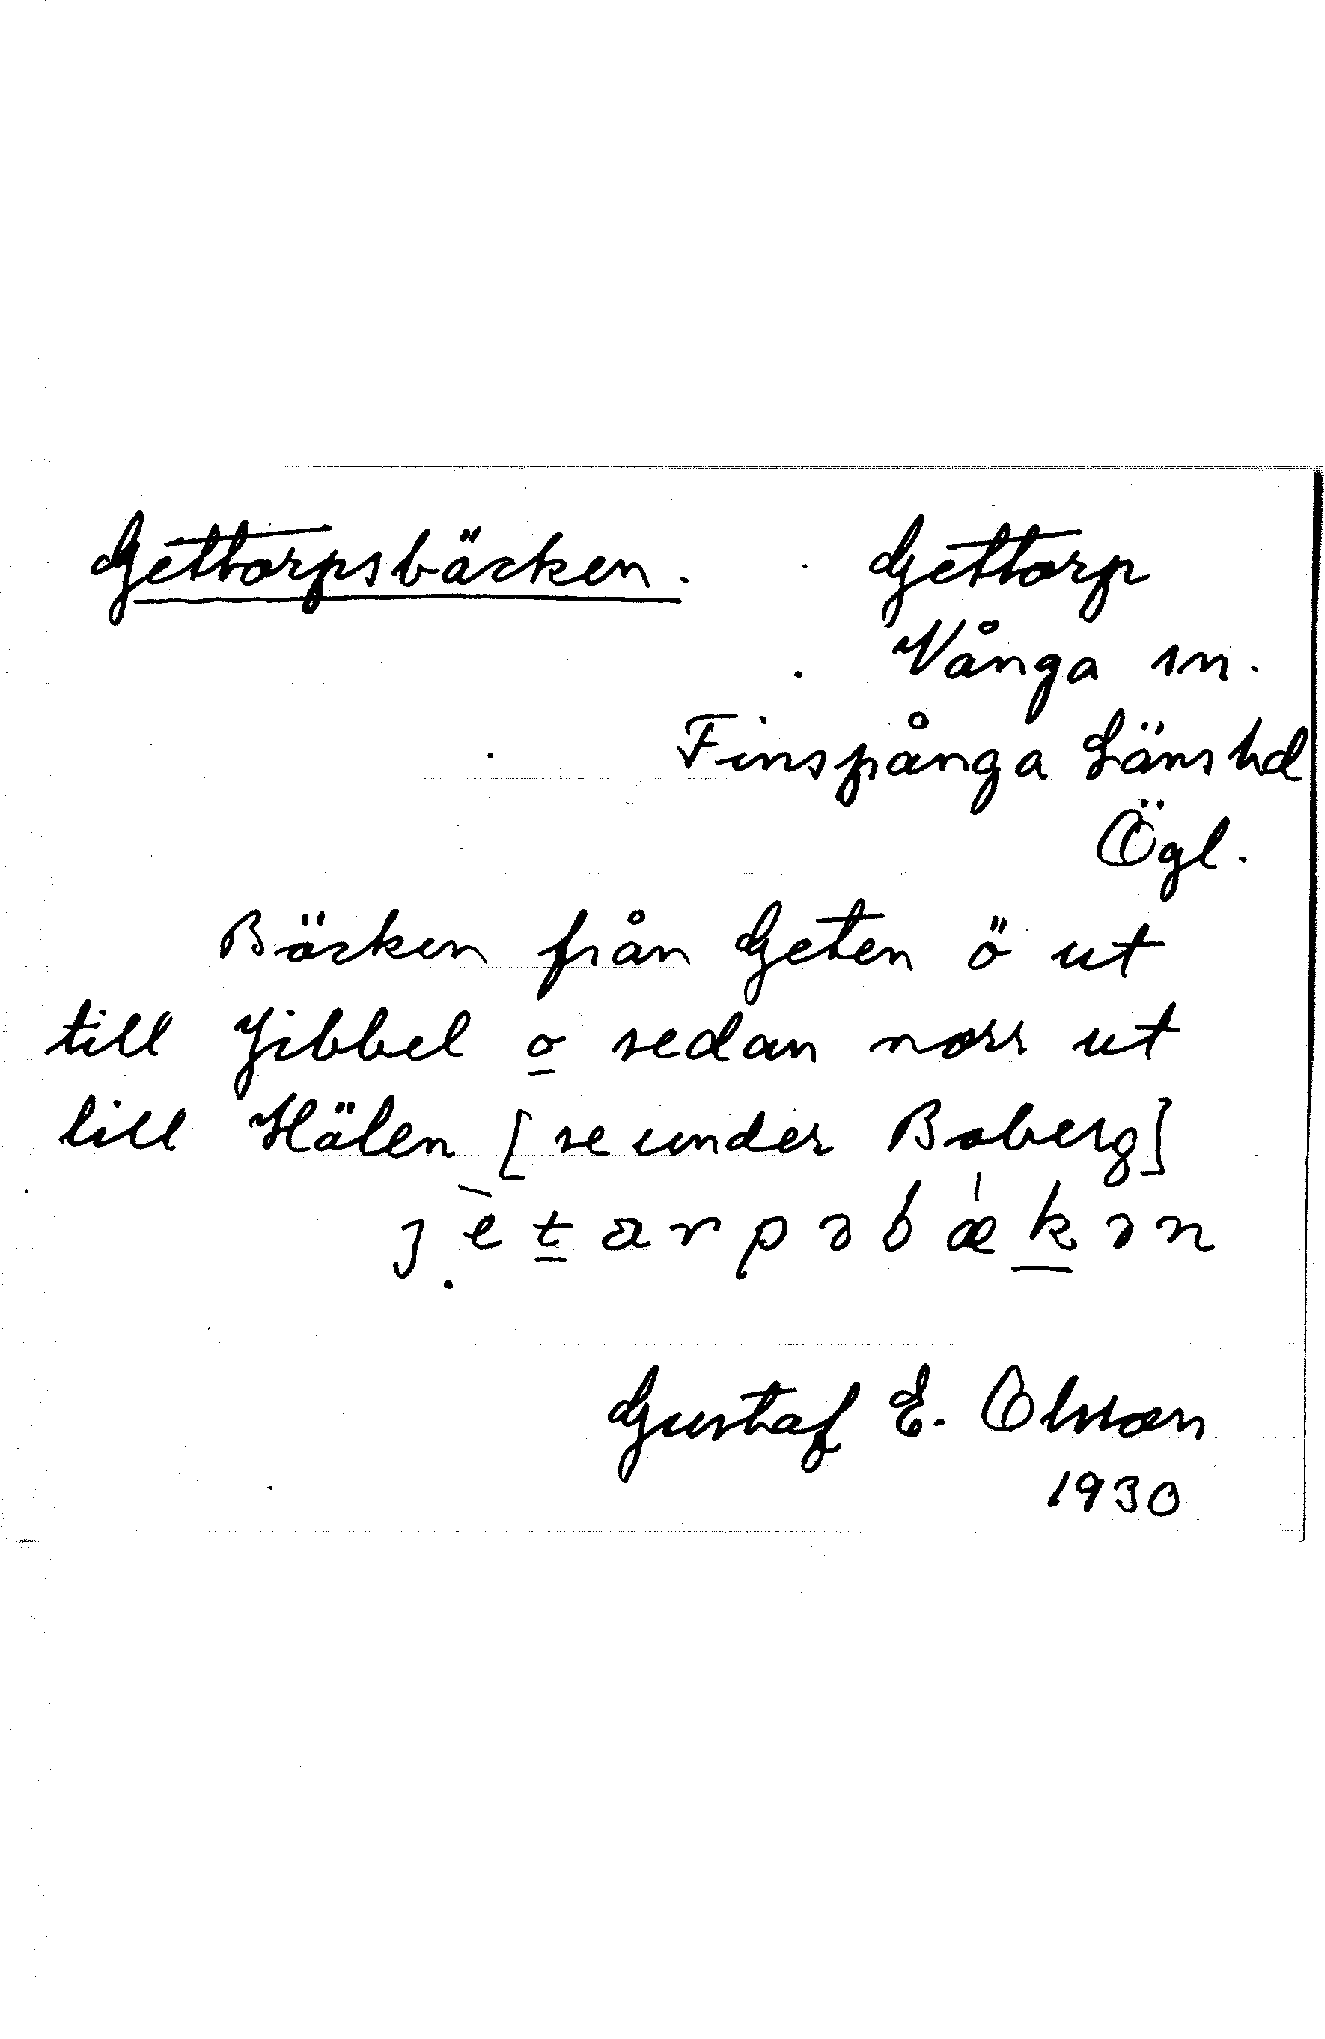 Gettorpsbäcken. Gettorp
Vånga sn.
Finspånga Länshd
Ögl.
Bäcken från Geten ö ut
till Jibbel o sedan norr ut
till Hälen [se under Boberg]
Gustaf E. Olsson
1930